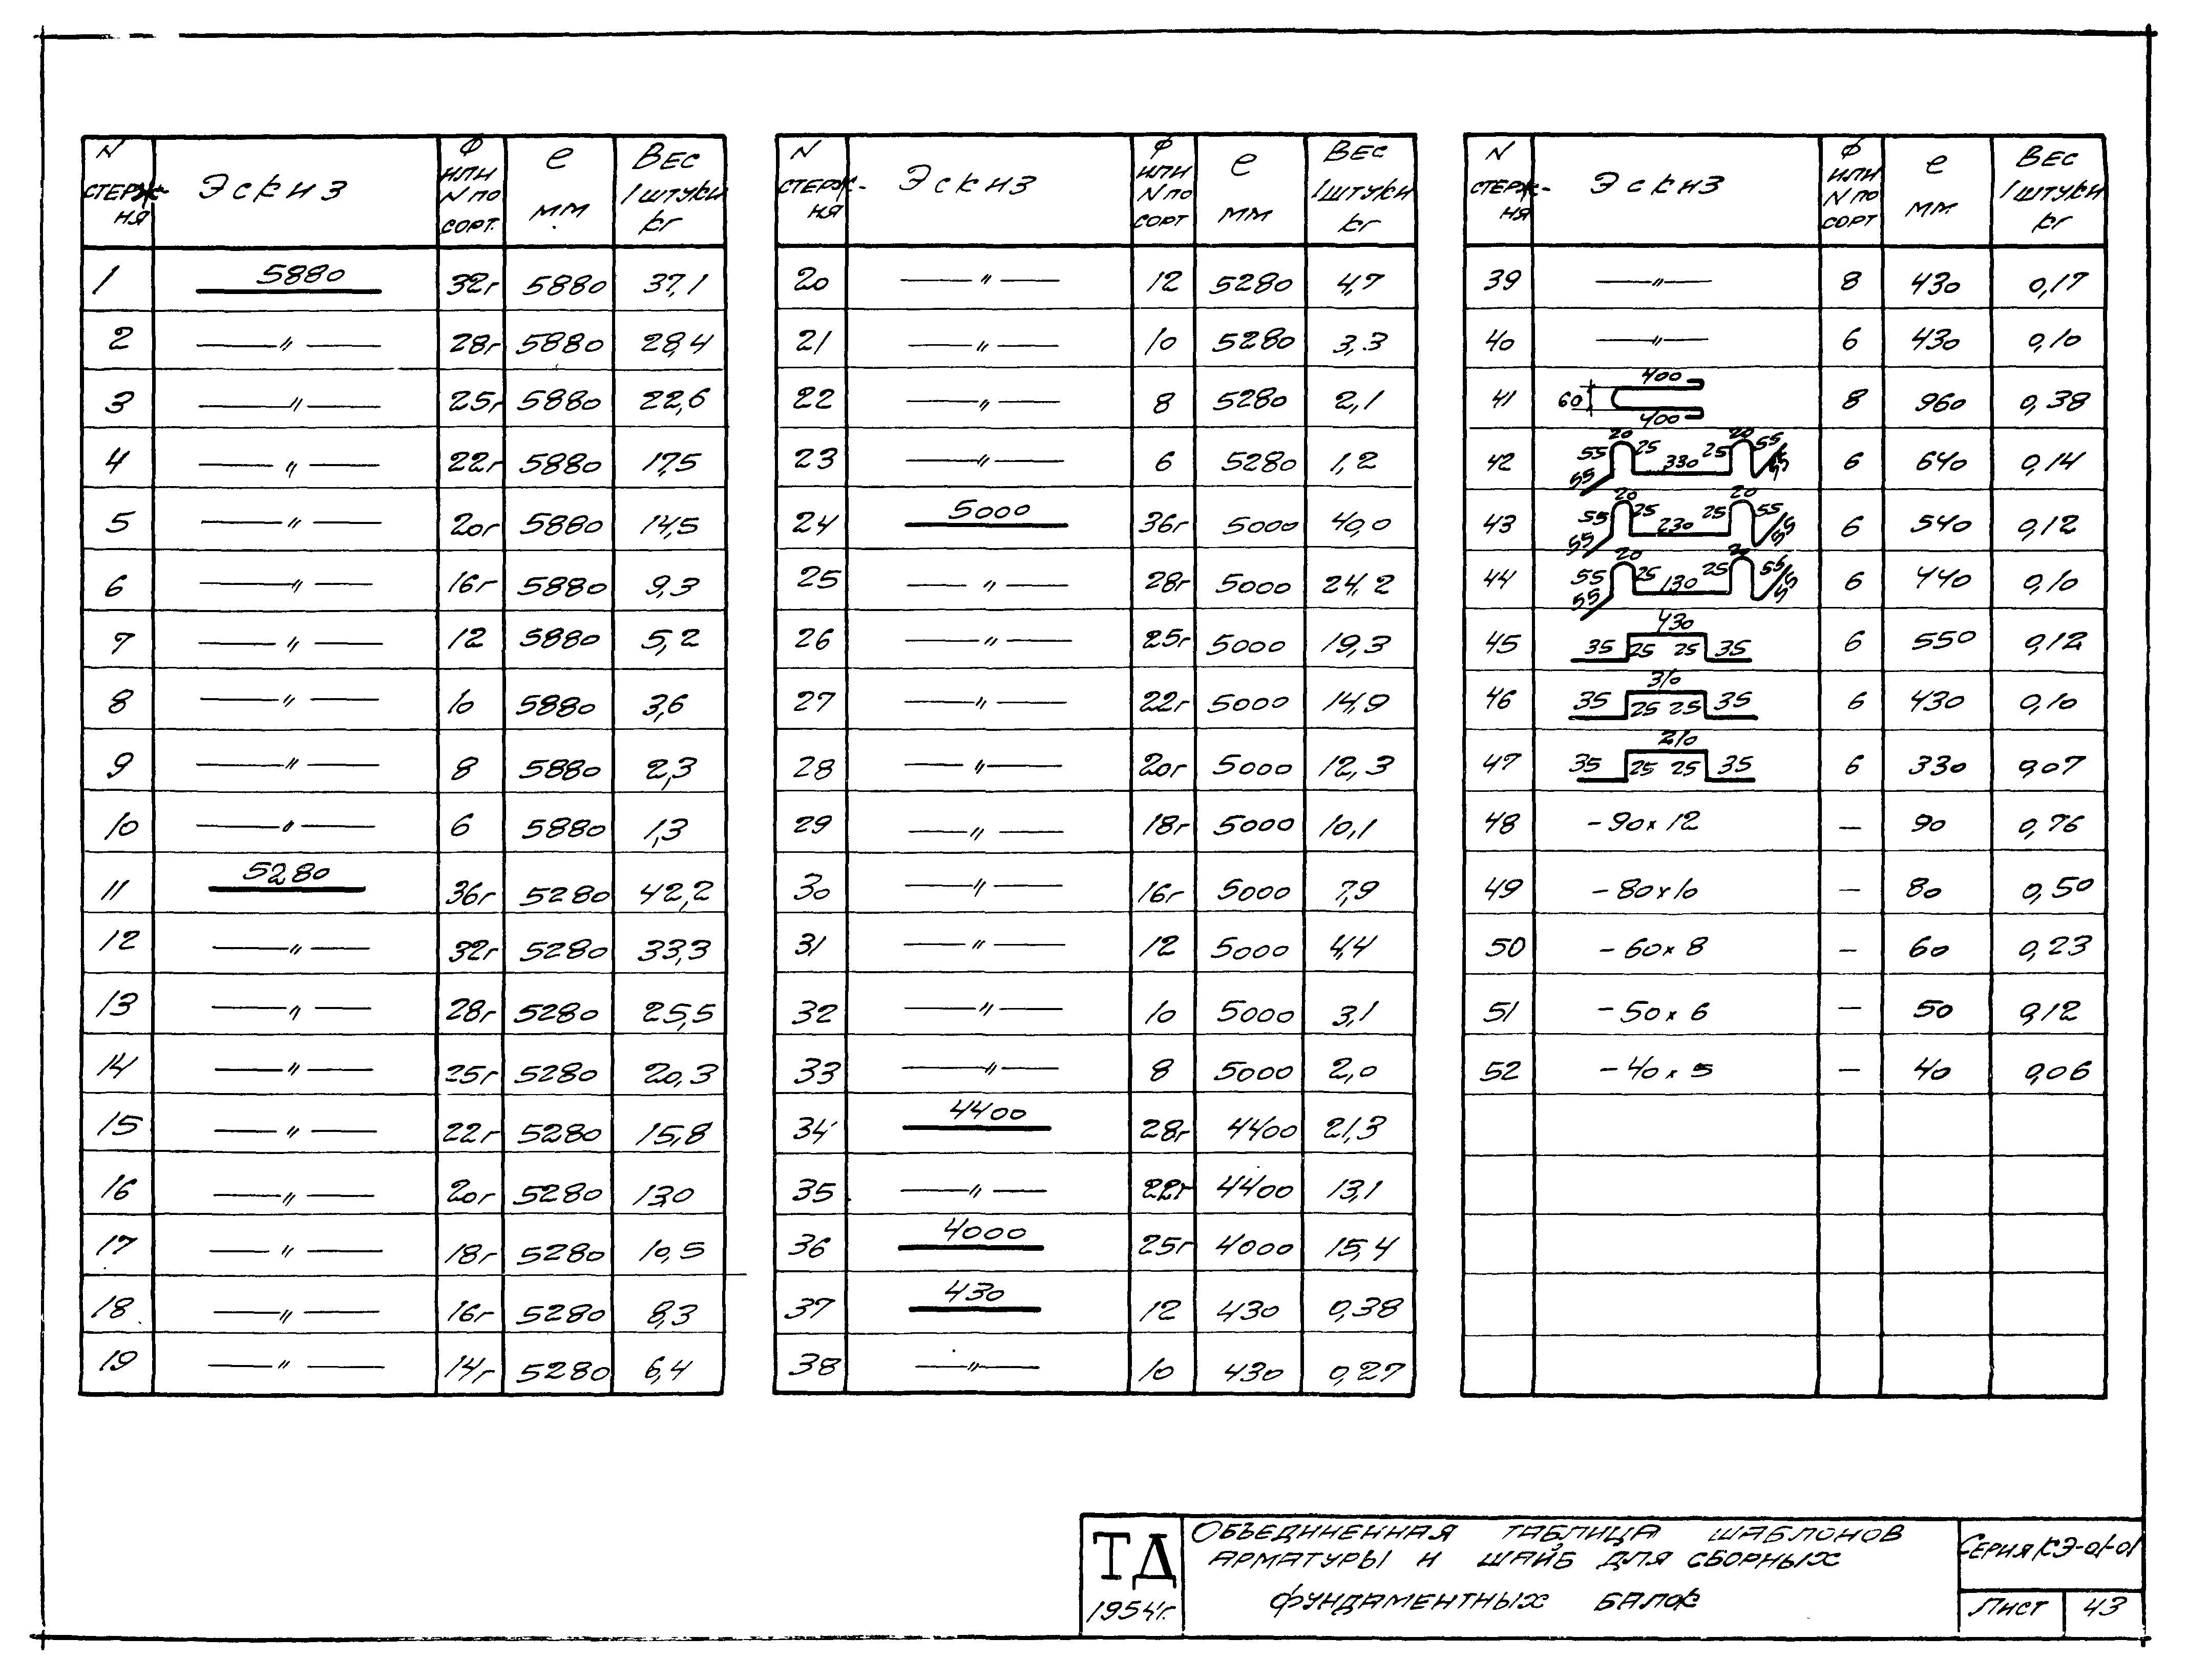 N стерж-ня Эскиз Ф или N по сорт. е мм Вес 1 штуки кг
1 5880 32г 5880 37,1
2 —〃— 28г 5880 28,4
3 —〃— 25г 5880 22,6
4 —〃— 22г 5880 17,5
5 —〃— 20г 5880 14,5
6 —〃— 16г 5880 9,3
7 —〃— 12 5880 5,2
8 —〃— 10 5880 3,6
9 —〃— 8 5880 2,3
10 —〃— 6 5880 1,3
11 5280 36г 5280 42,2
12 —〃— 32г 5280 33,3
13 —〃— 28г 5280 25,5
14 —〃— 25г 5280 20,3
15 —〃— 22г 5280 15,8
16 —〃— 20г 5280 13,0
17 —〃— 18г 5280 10,5
18 —〃— 16г 5280 8,3
19 —〃— 14г 5280 6,4
N стерж-ня Эскиз Ф или N по сорт е мм Вес 1 штуки кг
20 —〃— 12 5280 4,7
21 —〃— 10 5280 3,3
22 —〃— 8 5280 2,1
23 —〃— 6 5280 1,2
24 5000 36г 5000 40,0
25 —〃— 28г 5000 24,2
26 —〃— 25г 5000 19,3
27 —〃— 22г 5000 14,9
28 —〃— 20г 5000 12,3
29 —〃— 18г 5000 10,1
30 —〃— 16г 5000 7,9
31 —〃— 12 5000 4,4
32 —〃— 10 5000 3,1
33 —〃— 8 5000 2,0
34 4400 28г 4400 21,3
35 —〃— 22г 4400 13,1
36 4000 25г 4000 15,4
37 430 12 430 0,38
38 —〃— 10 430 0,27
N стерж-ня Эскиз Ф или N по сорт е мм Вес 1 штуки кг
39 —〃— 8 430 0,17
40 —〃— 6 430 0,10
41 60 400 400 8 960 0,38
42 55 55 20 25 330 25 20 55 55 6 640 0,14
43 55 55 20 25 230 25 20 55 55 6 540 0,12
44 55 55 20 25 130 25 20 55 55 6 440 0,10
45 35 25 430 25 35 6 550 0,12
46 35 25 310 25 35 6 430 0,10
47 35 25 210 25 35 6 330 0,07
48 -90×12 — 90 0,76
49 -80×10 — 80 0,50
50 -60×8 — 60 0,23
51 -50×6 — 50 0,12
52 -40×5 — 40 0,06
ТД
1954г.
Объединенная таблица шаблонов
арматуры и шайб для сборных
фундаментных балок
Серия КЭ-01-01
Лист 43